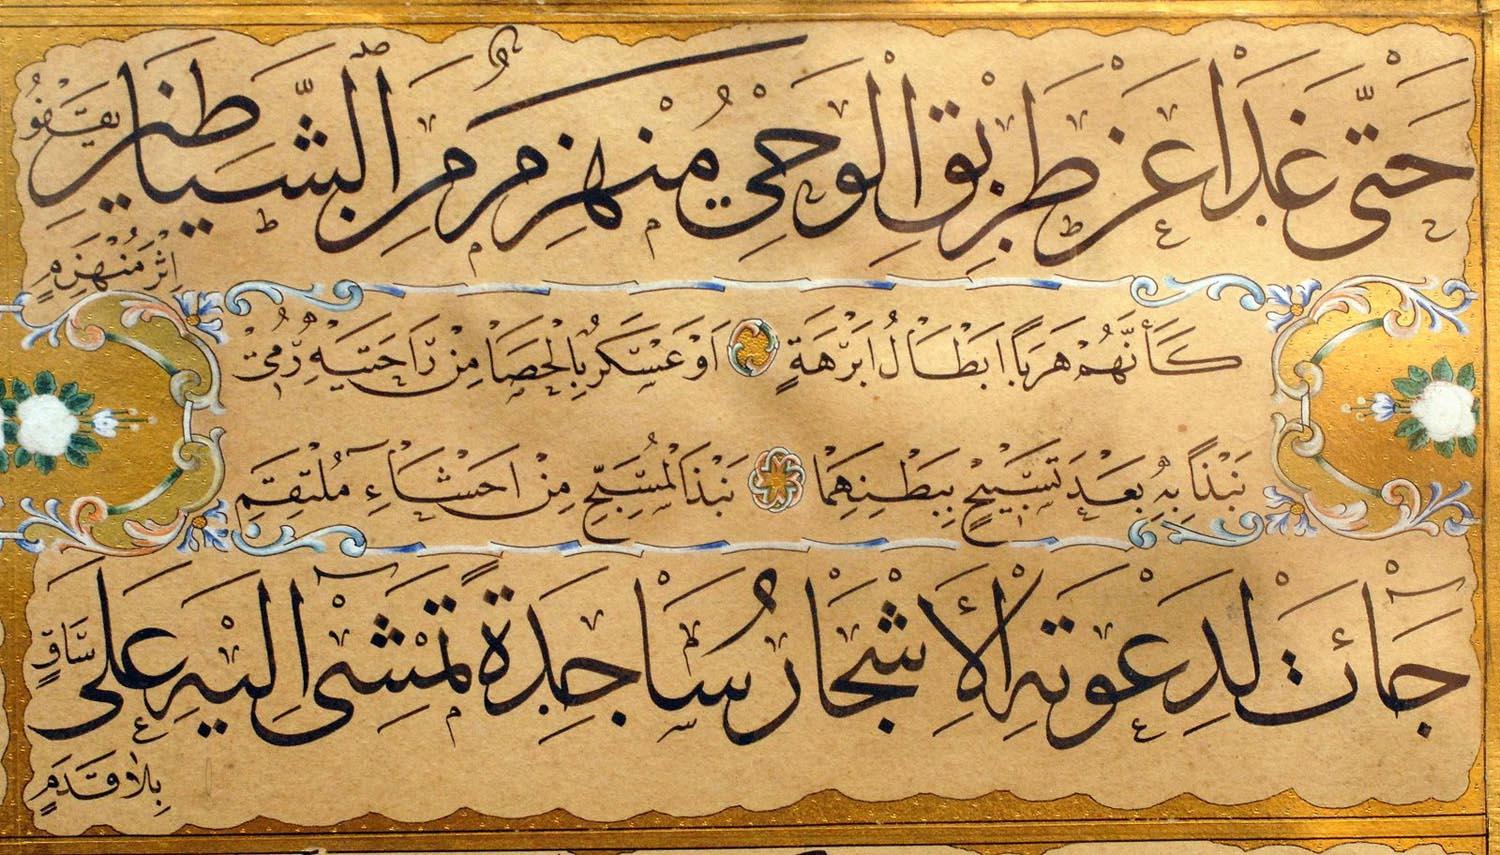 حَتّٰى غَدَا عَنْ طَرِيقِ الْوَحْيِ مُنْهَزِمٌ مِنَ الشَّيَاطِينِ يَقْفُو
اِثْرَ مُنْهَزِمٍ
كَأَنَّهُمْ هَرَبًا اَبْطَالُ اَبْرَهَةٍ اَوْ عَسْكَرٌ بِالْحَصَا مِنْ رَاحَتَيْهِ رُمِيْ
نَبْذًا بِهِ بَعْدَ تَسْبِيحٍ بِبَطْنِهِمَا نَبْذَ الْمُسَبِّحِ مِنْ اَحْشَاءِ مُلْتَقِمِ
جَآئَتْ لِدَعْوَتِهِ الْأَشْجَارُ سَاجِدَةً تَمْشِىٓ اِلَيْهِ عَلٰى سَاقٍ
بِلَا قَدَمٍ